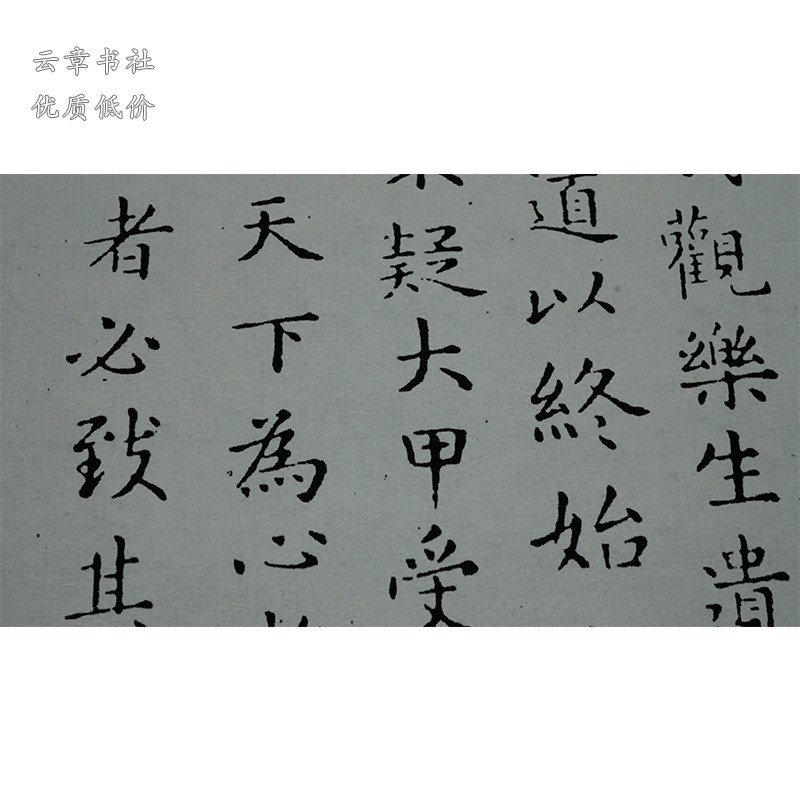 云章书社
优质低价
觀樂生遺
道以終始
疑大甲受
天下為心
者必致其